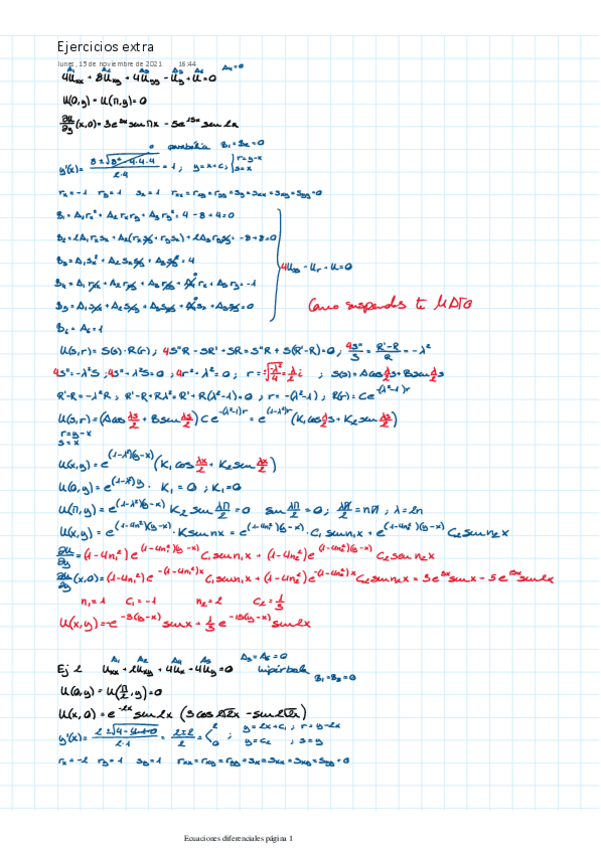 Ejercicios extra
lunes, 15 de noviembre de 2021 16:44
4Uxx + 8Uxy + 4Uyy - Uy + U = 0
U(0,y) = U(π,y) = 0
∂u/∂y (x,0) = 3e^3x sen x - 5e^15x sen 2x
parabólica B1 = B2 = 0
y'(x) = (8 ± √(8² - 4·4·4)) / 2·4 = 1 ; y = x + c ; { r = y - x s = x
rx = -1 ry = 1 sx = 1 rxx = rxy = ryy = sy = sxx = sxy = syy = 0
B1 = A1 rx² + A2 rx ry + A3 ry² = 4 - 8 + 4 = 0
B2 = 2A1 rx sx + A2(rx sy + ry sx) + 2A3 ry sy = -8 + 8 = 0
B3 = A1 sx² + A2 sx sy + A3 sy² = 4
4Uss - Ur + U = 0
B6 = A6 = 1
Como suspendas te MATO
U(s,r) = S(s)·R(r) ; 4S''R - SR' + SR = S''R + S(R' - R) = 0 ; 4S''/S = (R' - R)/R = -λ²
4S'' = -λ²S ; 4S'' + λ²S = 0 ; 4r² + λ² = 0 ; r = ±√(-λ²/4) = ± λ/2 i ; S(s) = A cos λ/2 s + B sen λ/2 s
R' - R = -λ²R ; R' - R + Rλ² = R' + R(λ² - 1) = 0 ; r = -(λ² - 1) ; R(r) = Ce^-(λ²-1)r
U(s,r) = (A cos λs/2 + B sen λs/2) C e^-(λ²-1)r = e^(1-λ²)r (K1 cos λs/2 + K2 sen λs/2)
r = y - x
s = x
U(x,y) = e^(1-λ²)(y-x) (K1 cos λx/2 + K2 sen λx/2)
U(0,y) = e^(1-λ²)y · K1 = 0 ; K1 = 0
U(π,y) = e^(1-λ²)(y-π) K2 sen λπ/2 = 0 sen λπ/2 = 0 ; λπ/2 = nπ ; λ = 2n
U(x,y) = e^(1-4n²)(y-x) · K sen nx = e^(1-4n1²)(y-x) · C1 sen n1x + e^(1-4n2²)(y-x) C2 sen n2x
∂u/∂y = (1-4n1²) e^(1-4n1²)(y-x) C1 sen n1x + (1-4n2²) e^(1-4n2²)(y-x) C2 sen n2x
∂u/∂y (x,0) = (1-4n1²) e^-(1-4n1²)x C1 sen n1x + (1-4n2²) e^-(1-4n2²)x C2 sen n2x = 3e^3x sen x - 5e^15x sen 2x
n1 = 1 C1 = -1 n2 = 2 C2 = 1/3
U(x,y) = -e^-3(y-x) sen x + 1/3 e^-15(y-x) sen 2x
Ej 2 Uxx + 2Uxy + 4Ux - 4Uy = 0 hipérbola
U(0,y) = U(π/2,y) = 0
U(x,0) = e^-2x sen 2x (3 cos √2 2x - sen √2 2x)
y = 2x + c1 ; r = y - 2x
y = c2 ; s = y
rx = -2 ry = 1 sy = 1 rxx = rxy = ryy = sx = sxx = sxy = syy = 0
Ecuaciones diferenciales página 1